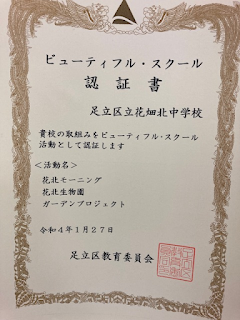 ビューティフル・スクール
認証書
足立区立花畑北中学校
貴校の取組みをビューティフル・スクール
活動として認証します
＜活動名＞
花北モーニング
花北生物園
ガーデンプロジェクト
令和４年１月２７日
足立区教育委員会